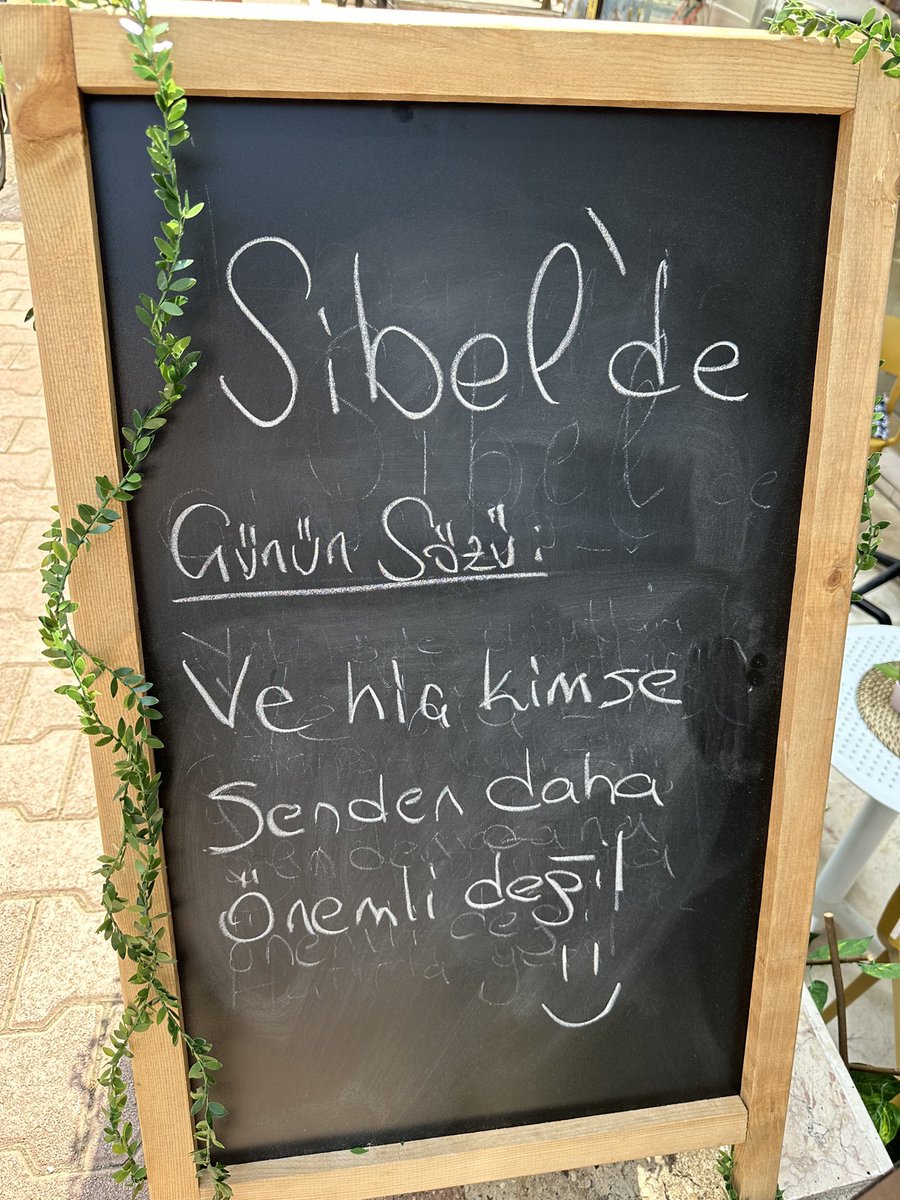 Sibel'de
Günün Sözü:
Ve hla kimse
Senden daha
Önemli değil